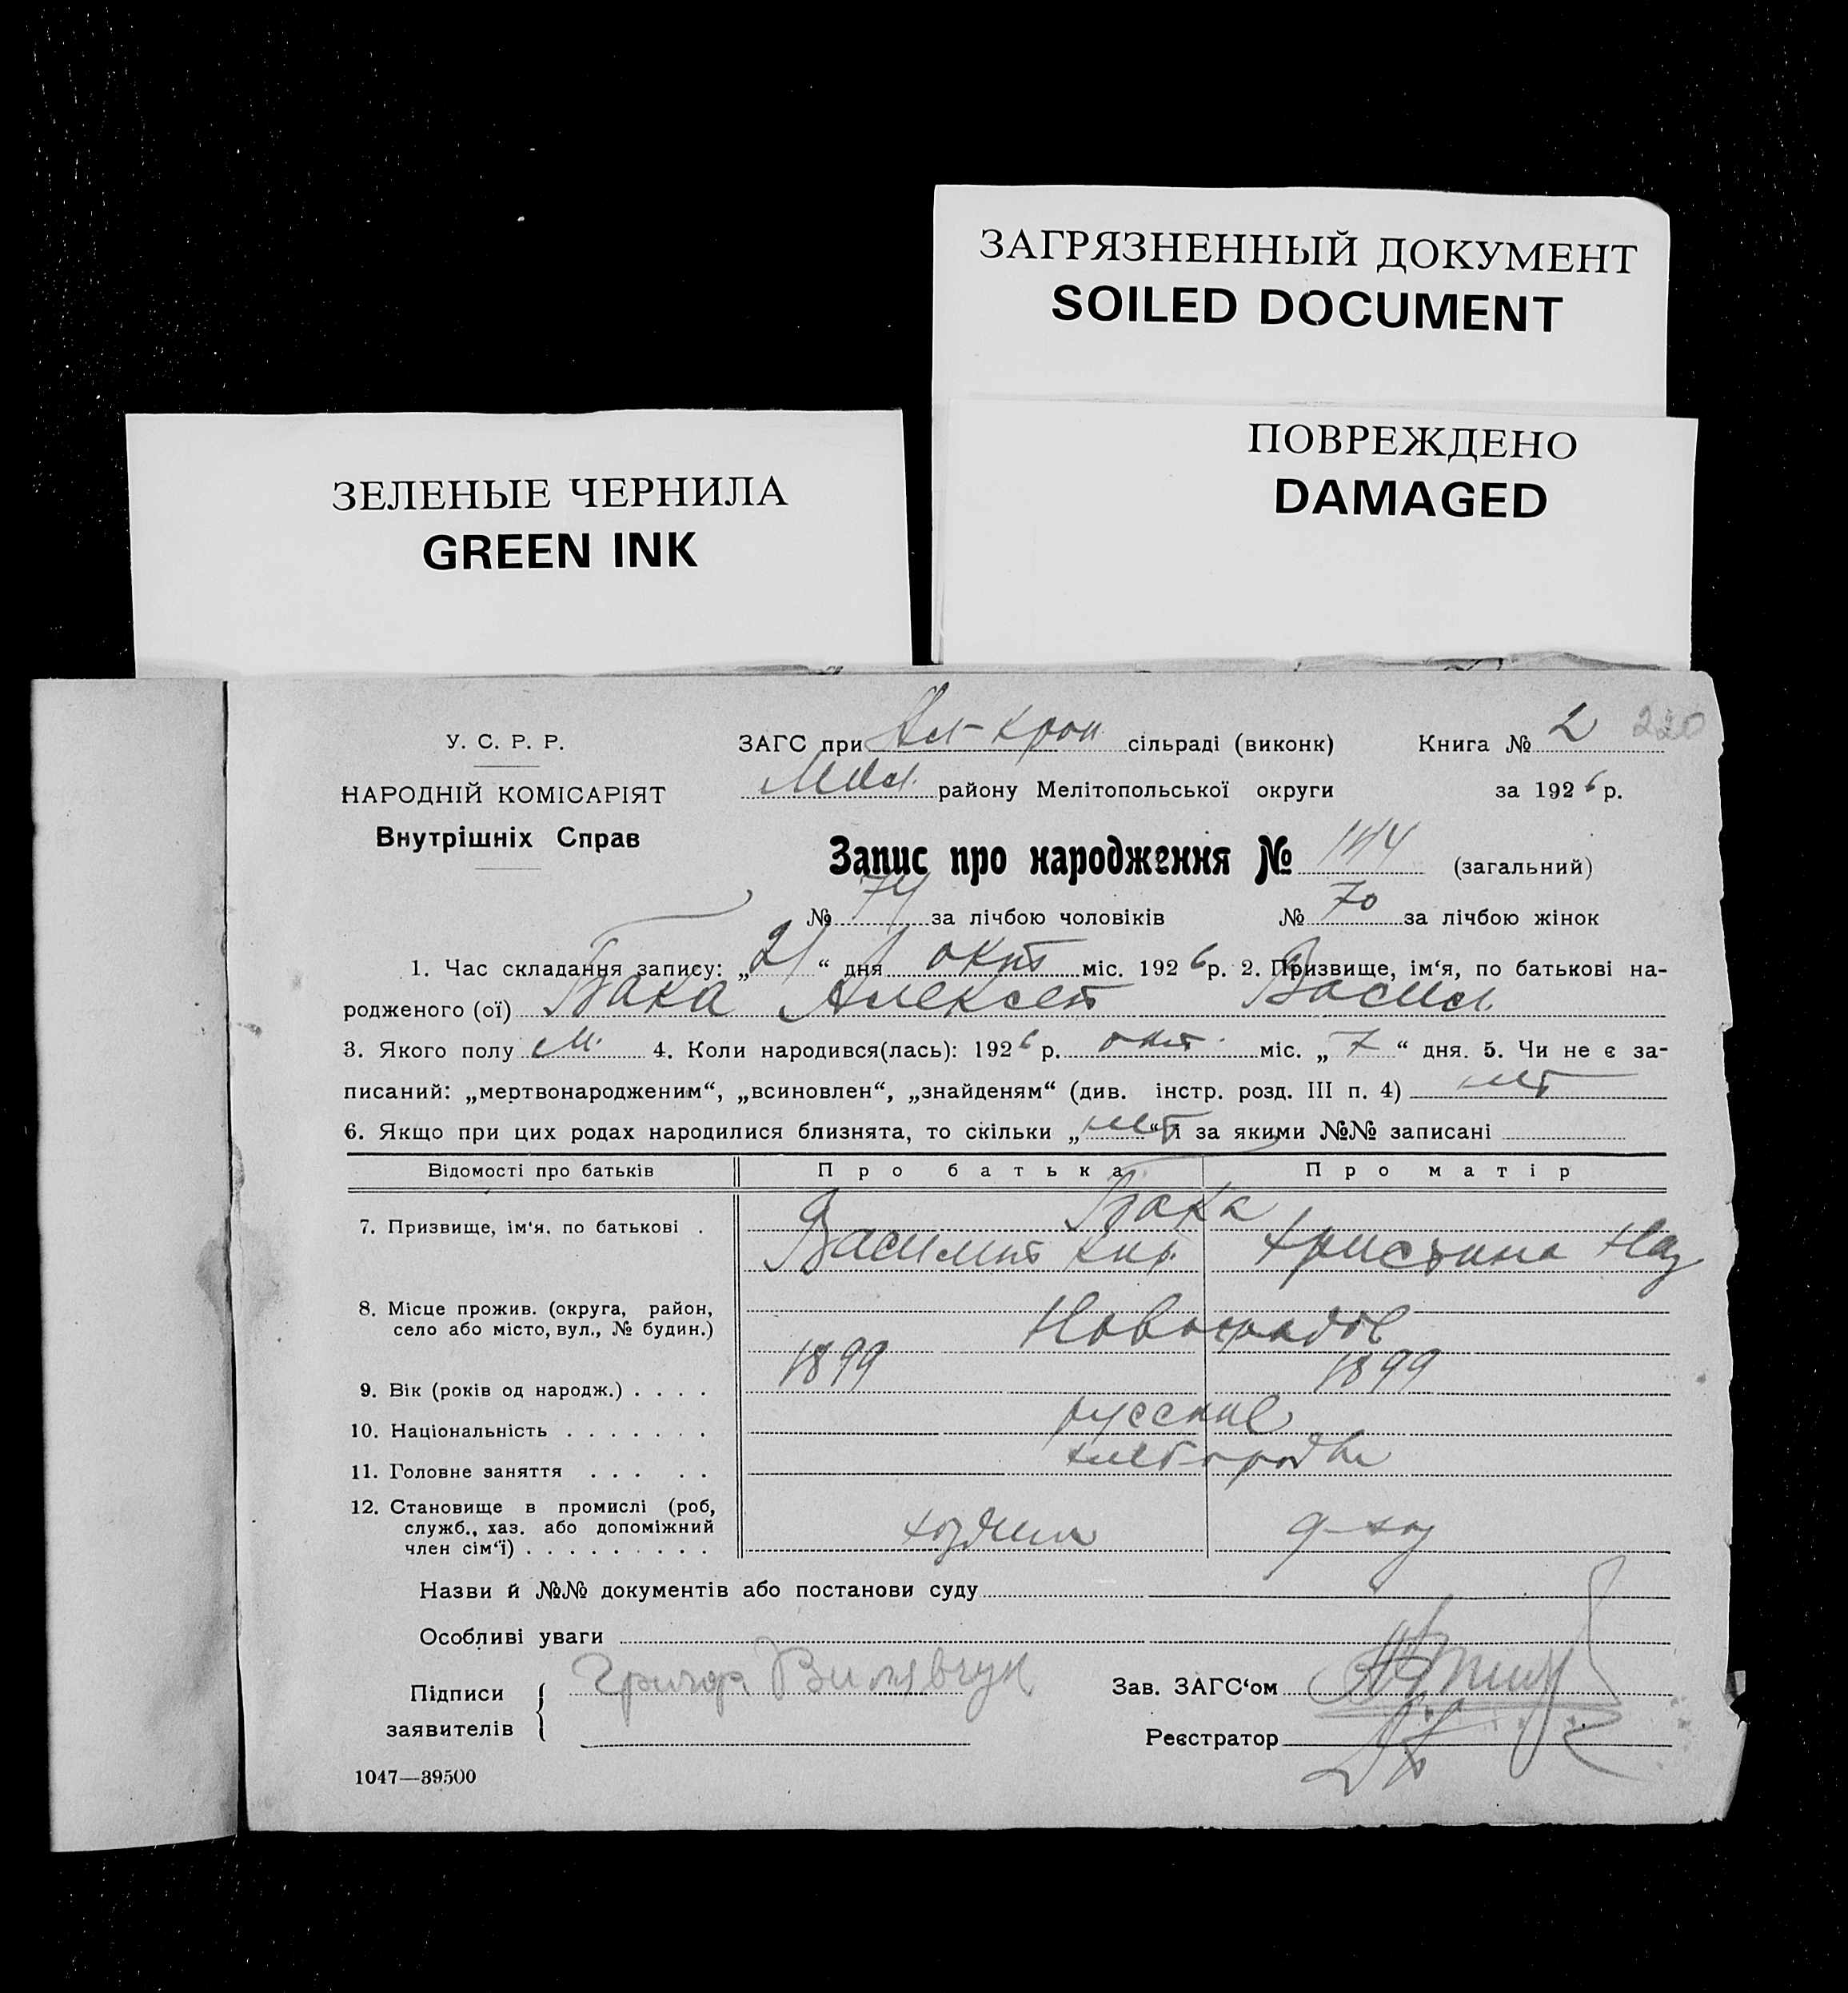 ЗАГРЯЗНЕННЫЙ ДОКУМЕНТ
SOILED DOCUMENT
ЗЕЛЕНЫЕ ЧЕРНИЛА
GREEN INK
ПОВРЕЖДЕНО
DAMAGED
У. С. Р. Р.
НАРОДНІЙ КОМІСАРІЯТ
Внутрішніх Справ
ЗАГС при сільраді (виконк) Книга № 2 220
району Мелітопольської округи за 1926 р.
Запис про народження № 144 (загальний)
№ 74 за лічбою чоловіків № 70 за лічбою жінок
1. Час складання запису: „21“ дня окт міс. 1926 р. 2. Призвище, ім‘я, по батькові на-
родженого (ої) Бака Алексей Васил.
3. Якого полу м. 4. Коли народився(лась): 1926 р. окт. міс. „7“ дня. 5. Чи не є за-
писаний: „мертвонародженим“, „всиновлен“, „знайденям“ (див. інстр. розд. III п. 4) нет
6. Якщо при цих родах народилися близнята, то скільки „нет“ і за якими №№ записані
Відомості про батьків Про батька Про матір
7. Призвище, ім‘я, по батькові . Бака
Василий Кир. Христина Наз
8. Місце прожив. (округа, район,
село або місто, вул., № будин.)
9. Вік (років од народж.) . . . . 1899 1899
10. Національність . . . . . . . русские
11. Головне заняття . . . . . хлебородве
12. Становище в промислі (роб,
служб., хаз. або допоміжний
член сім‘ї) . . . . . . . . . хозяин
Назви й №№ документів або постанови суду
Особливі уваги
Підписи
заявителів
Зав. ЗАГС‘ом
Реєстратор
1047—39500